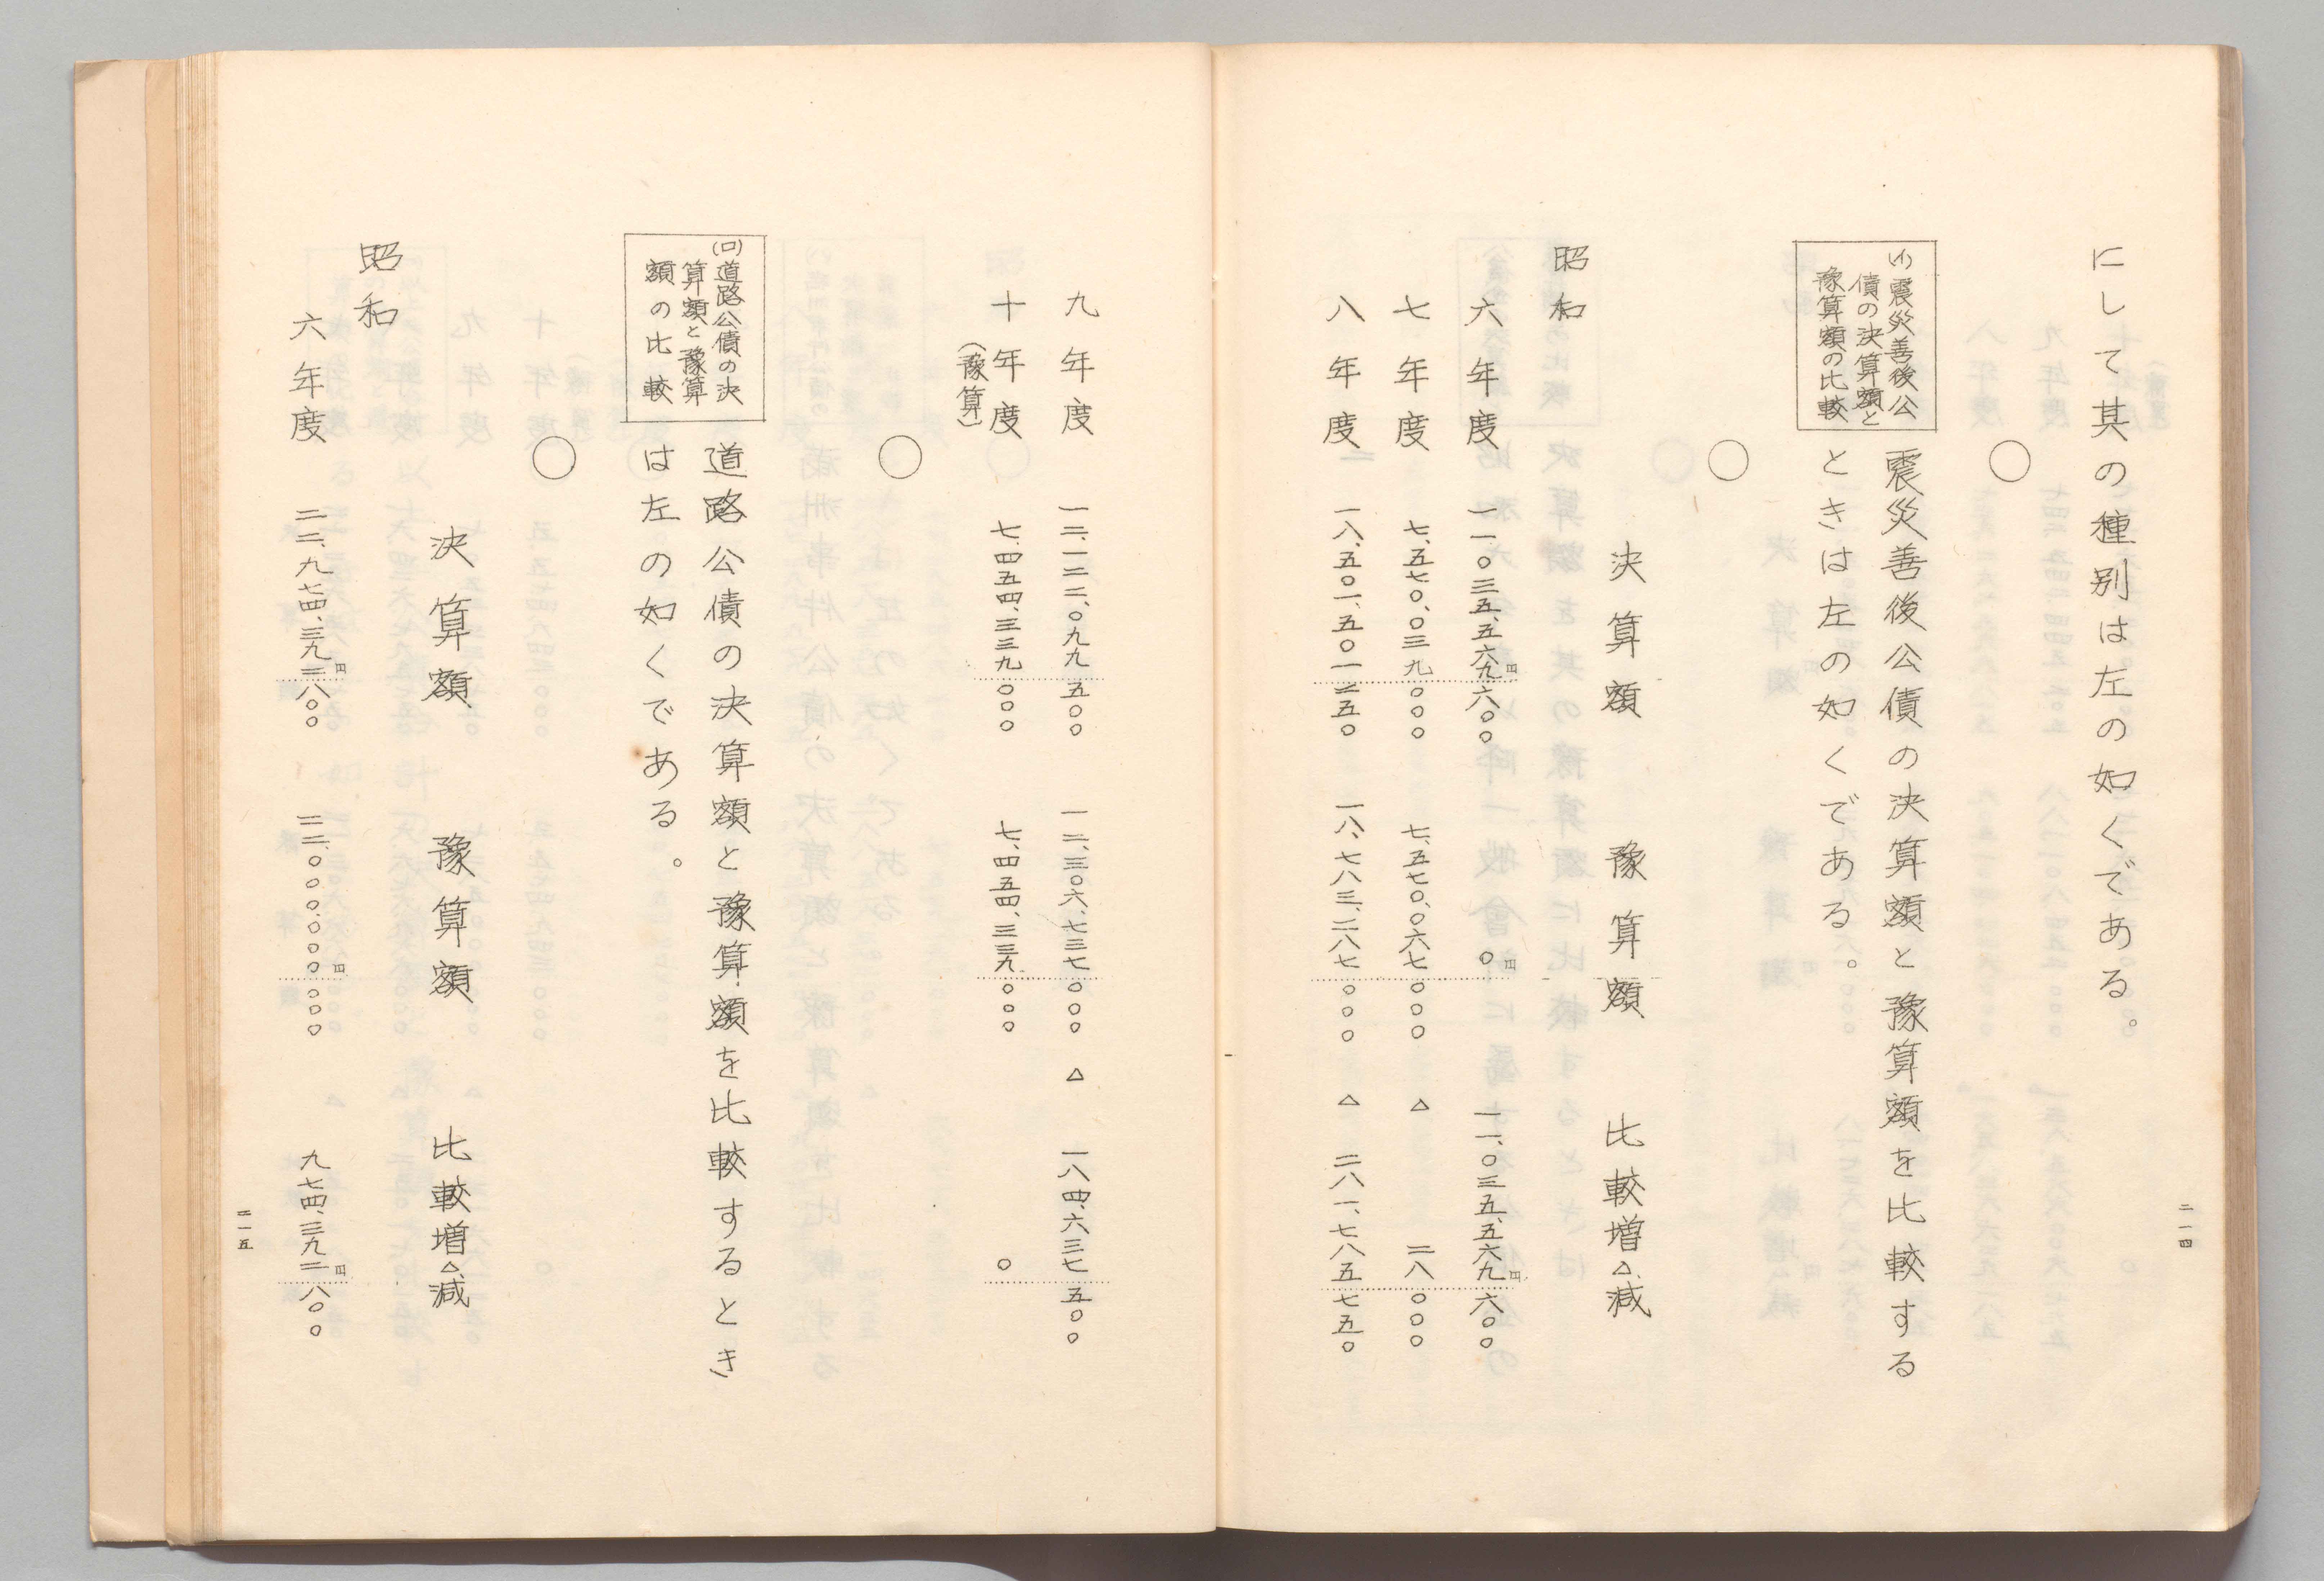 にして其の種別は左の如くである。
○
(イ)震災善後公
債の決算額と
豫算額の比較
震災善後公債の決算額と豫算額を比較する
ときは左の如くである。
○
決算額 豫算額 比較増△減
昭和
六年度 一一、〇三五、五六九円六〇〇 〇円 一一、〇三五、五六九円六〇〇
七年度 七、五七〇、〇三九 〇〇〇 七、五七〇、〇六七 〇〇〇 △ 二八 〇〇〇
八年度 一八、五〇一、五〇一 二五〇 一八、七八三、二八七 〇〇〇 △ 二八一、七八五 七五〇
二一四
九年度 一二、一二二、〇九九 五〇〇 一二、三〇六、七三七 〇〇〇 △ 一八四、六三七 五〇〇
十年度 七、四五四、三三九 〇〇〇 七、四五四、三三九 〇〇〇 〇
(豫算)
○
(ロ)道路公債の決
算額と豫算
額の比較
道路公債の決算額と豫算額を比較するとき
は左の如くである。
○
決算額 豫算額 比較増△減
昭和
六年度 二二、九七四、三九二円八〇〇 二二、〇〇〇、〇〇〇円〇〇〇 九七四、三九二円八〇〇
二一五